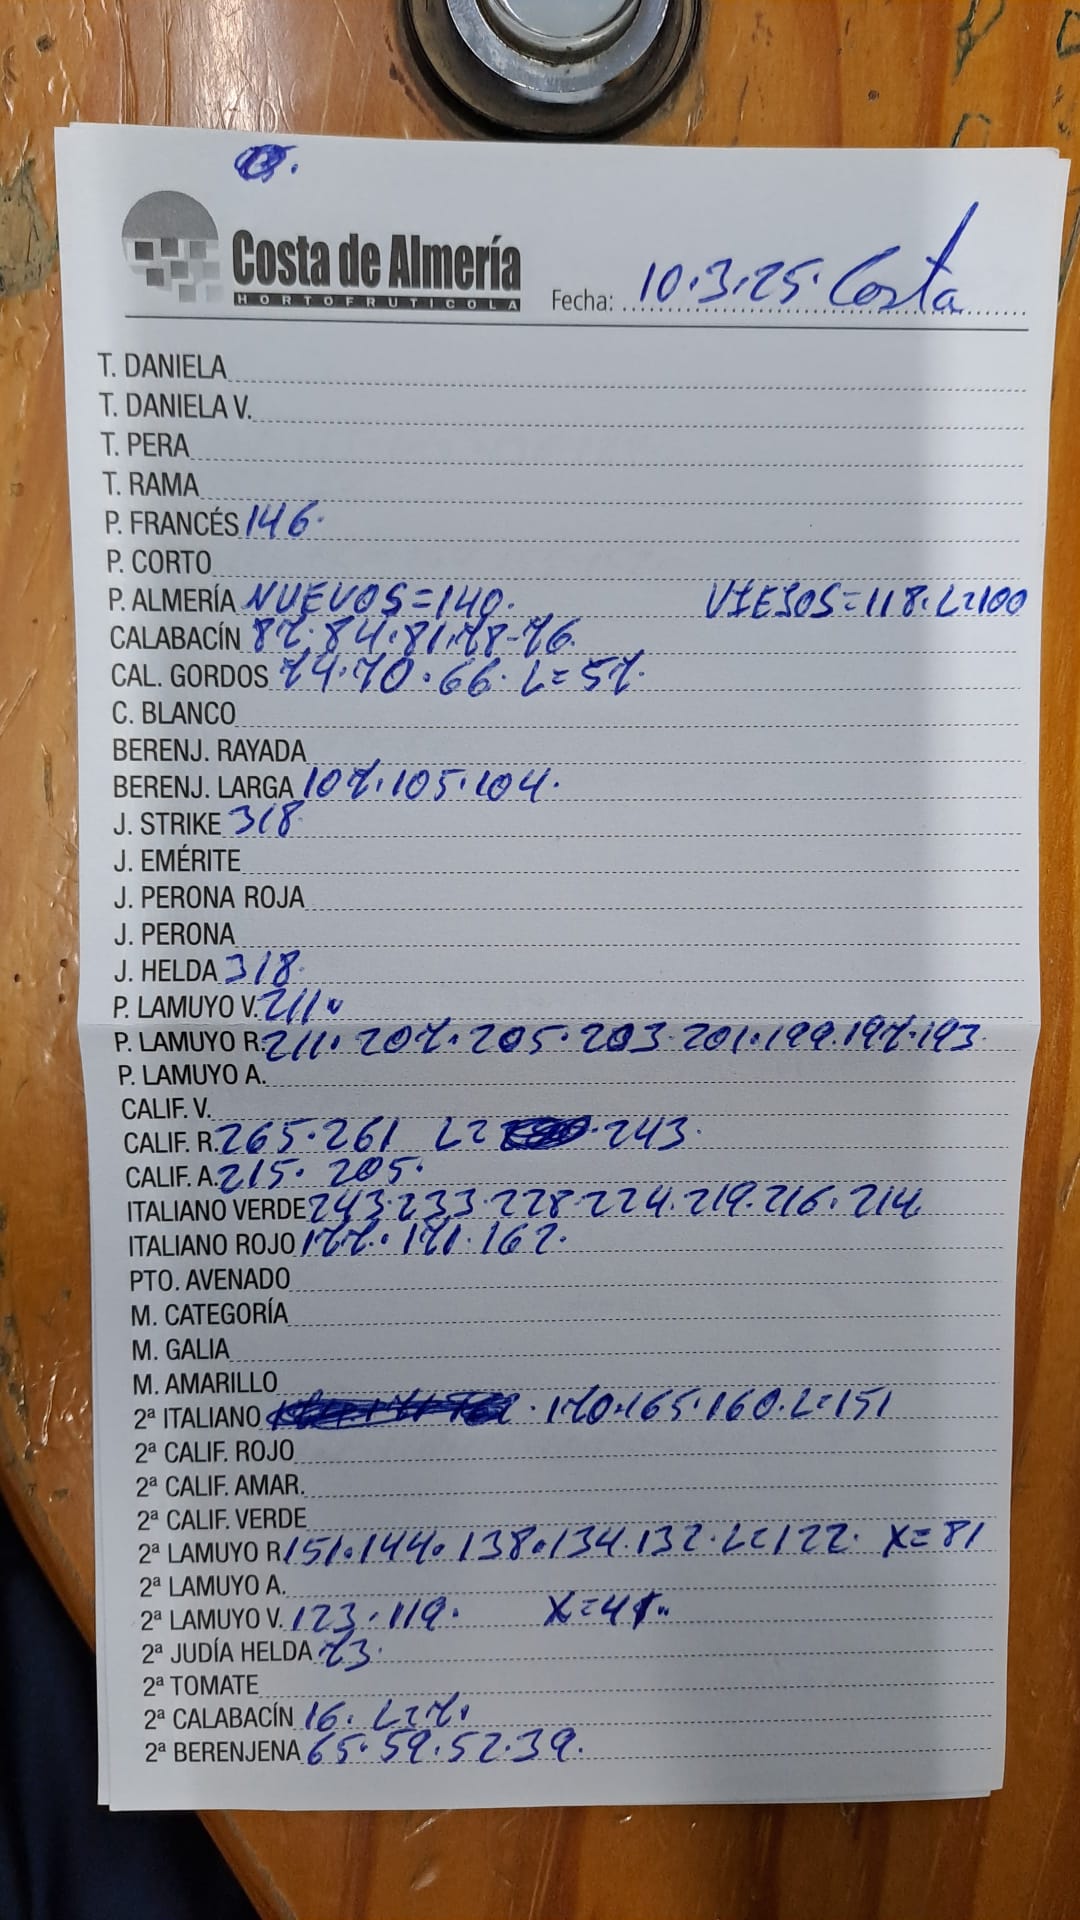 Costa de Almería
HORTOFRUTICOLA
Fecha: 10.3.25. Costa
T. DANIELA
T. DANIELA V.
T. PERA
T. RAMA
P. FRANCÉS 146.
P. CORTO
P. ALMERÍA NUEVOS=140. VIEJOS=118. L=100
CALABACÍN 87.84.81.78-76.
CAL. GORDOS 74.70.66. L=57.
C. BLANCO
BERENJ. RAYADA
BERENJ. LARGA 107.105.104.
J. STRIKE 318
J. EMÉRITE
J. PERONA ROJA
J. PERONA
J. HELDA 318.
P. LAMUYO V. 211.
P. LAMUYO R. 211. 207. 205. 203. 201. 199. 197. 193.
P. LAMUYO A.
CALIF. V.
CALIF. R. 265.261 L= 243.
CALIF. A. 215. 205.
ITALIANO VERDE 243.233.228.224.219.216.214
ITALIANO ROJO 177. 171. 162.
PTO. AVENADO
M. CATEGORÍA
M. GALIA
M. AMARILLO
2ª ITALIANO 170.165.160.L=151
2ª CALIF. ROJO
2ª CALIF. AMAR.
2ª CALIF. VERDE
2ª LAMUYO R. 151.144.138.134.132.L=122. X=81
2ª LAMUYO A.
2ª LAMUYO V. 123.119.
2ª JUDÍA HELDA 73.
2ª TOMATE
2ª CALABACÍN 16. L=7.
2ª BERENJENA 65.59.52.39.